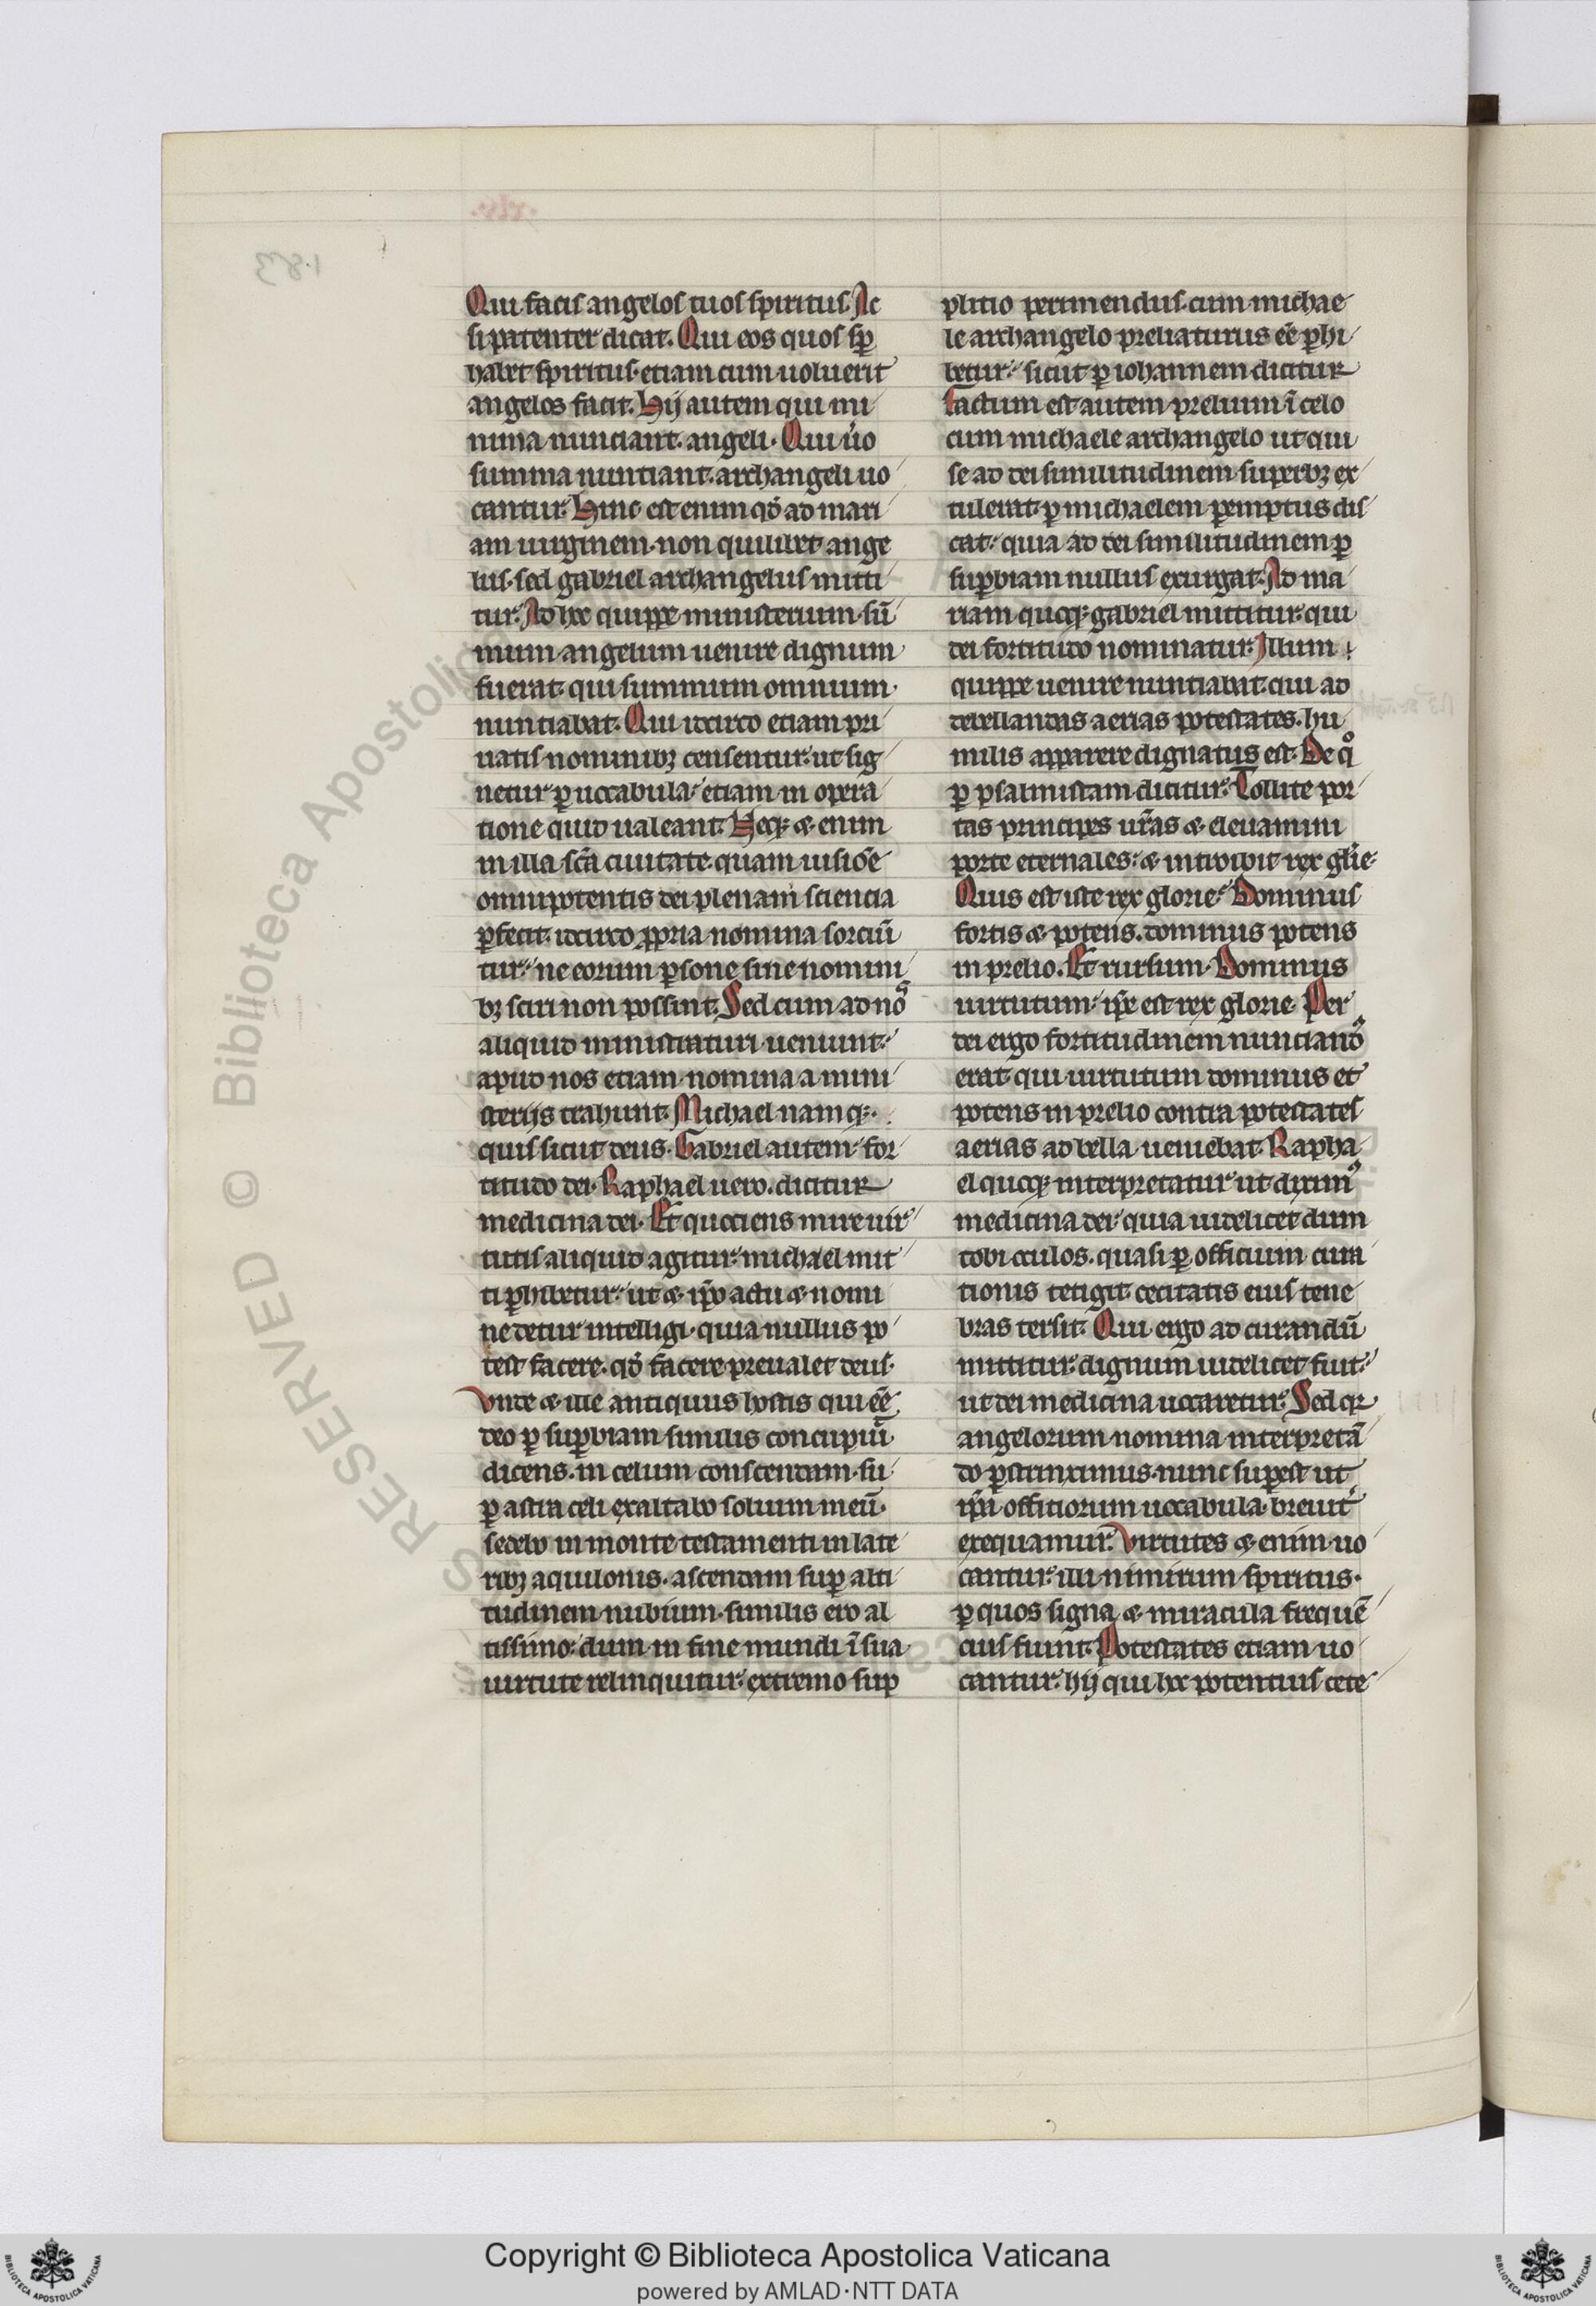 Qui facis angelos tuos spiritus. Ac
si patenter dicat. Qui eos quos sp̄
habet spiritus. etiam cum uoluerit
angelos facit. Hij autem qui mi
nima nunciant. angeli. Qui u̾o
summa nuntiant. archangeli uo
cantur. Hinc est enim qd̾ ad mari
am uirginem. non quilibet ange
lus. sed gabriel archangelus mitti
tur. Ad hoc quippe ministerium. sū
mum angelum uenire dignum
fuerat. qui summum omnium.
nuntiabat. Qui idcirco etiam pri
uatis nominibꝫ censentur. ut sig
netur ꝑ uocabula. etiam in opera
tione quid ualeant. Neqꝫ & enim
in illa sc̄a ciuitate. quam uisiōe
omnipotentis dei plenam sciencia
ꝑfecit. idcirco ꝓpria nomina sorciū
tur. ne eorum ꝑsone sine nomini
bꝫ sciri non possint. Sed cum ad nos
aliquid ministraturi ueniunt.
apud nos etiam. nomina a mini
sterijs trahunt. Michael namqꝫ.
quis sicut deus. Gabriel autem. for
titudo dei. Raphael uero. dicitur
medicina dei. Et quociens mire uir
tutis aliquid agitur. michael mit
ti ꝑhibetur. ut & ip̄o actu & nomi
ne detur intelligi. quia nullus po
test facere. qd̾ facere preualet deus.
Vnde & ille antiquus hostis qui eē
deo ꝑ suꝑbiam similis concupiuit.
dicens. in celum conscendam. su
ꝑ astra celi exaltabo solium meū.
sedebo in monte testamenti in late
ribꝫ aquilonis. ascendam suꝑ alti
tudinem nubium. similis ero al
tissimo. dum in fine mundi ī sua
uirtute relinquitur. extremo sup
plitio perimendus. cum michae
le archangelo preliaturus eē ꝑhi
betur. sicut ꝑ iohannem dicitur
Factum est autem prelium ī celo
cum michaele archangelo ut qui
se ad dei similitudinem superbꝫ ex
tulerat. ꝑ michaelem ꝑemptus dis
cat. quia ad dei similitudinem ꝑ
suꝑbiam nullus exurgat. Ad ma
riam quoqꝫ gabriel mittitur. qui
dei fortitudo nominatur. Illum
quippe uenire nuntiabat. qui ad
debellandas aerias potestates. hu
milis apparere dignatus est. De qͦ
ꝑ psalmistam dicitur. Tollite por
tas principes ur̄as & eleuamini
porte eternales. & introibit rex gl̄ie.
Quis est iste rex glorie. Dominus
fortis & potens. dominus potens
in prelio. Et rursum. Dominus
uirtutum. ip̄e est rex glorie. Per
dei ergo fortitudinem nunciandꝰ
erat. qui uirtutum dominus et
potens in prelio contra potestates
aerias ad bella ueniebat. Rapha
el quoqꝫ interpretatur ut diximꝰ
medicina dei. quia uidelicet dum
tobi oculos. quasi ꝑ officium cura
tionis tetigit. cecitatis eius tene
bras tersit. Qui ergo ad curandū
mittitur. dignum uidelicet fuit.
ut dei medicina uocaretur. Sed qꝛ
angelorum nomina interpretā
do ꝑstrinximus. nunc suꝑest ut
ip̄a offitiorum uocabula breuit̾
exequamur. Virtutes & enim uo
cantur. illi nimirum spiritus.
ꝑ quos signa & miracula frequē
cius fiunt. Potestates etiam uo
cantur. hij qui hoc potentius cete
Copyright © Biblioteca Apostolica Vaticana
powered by AMLAD·NTT DATA